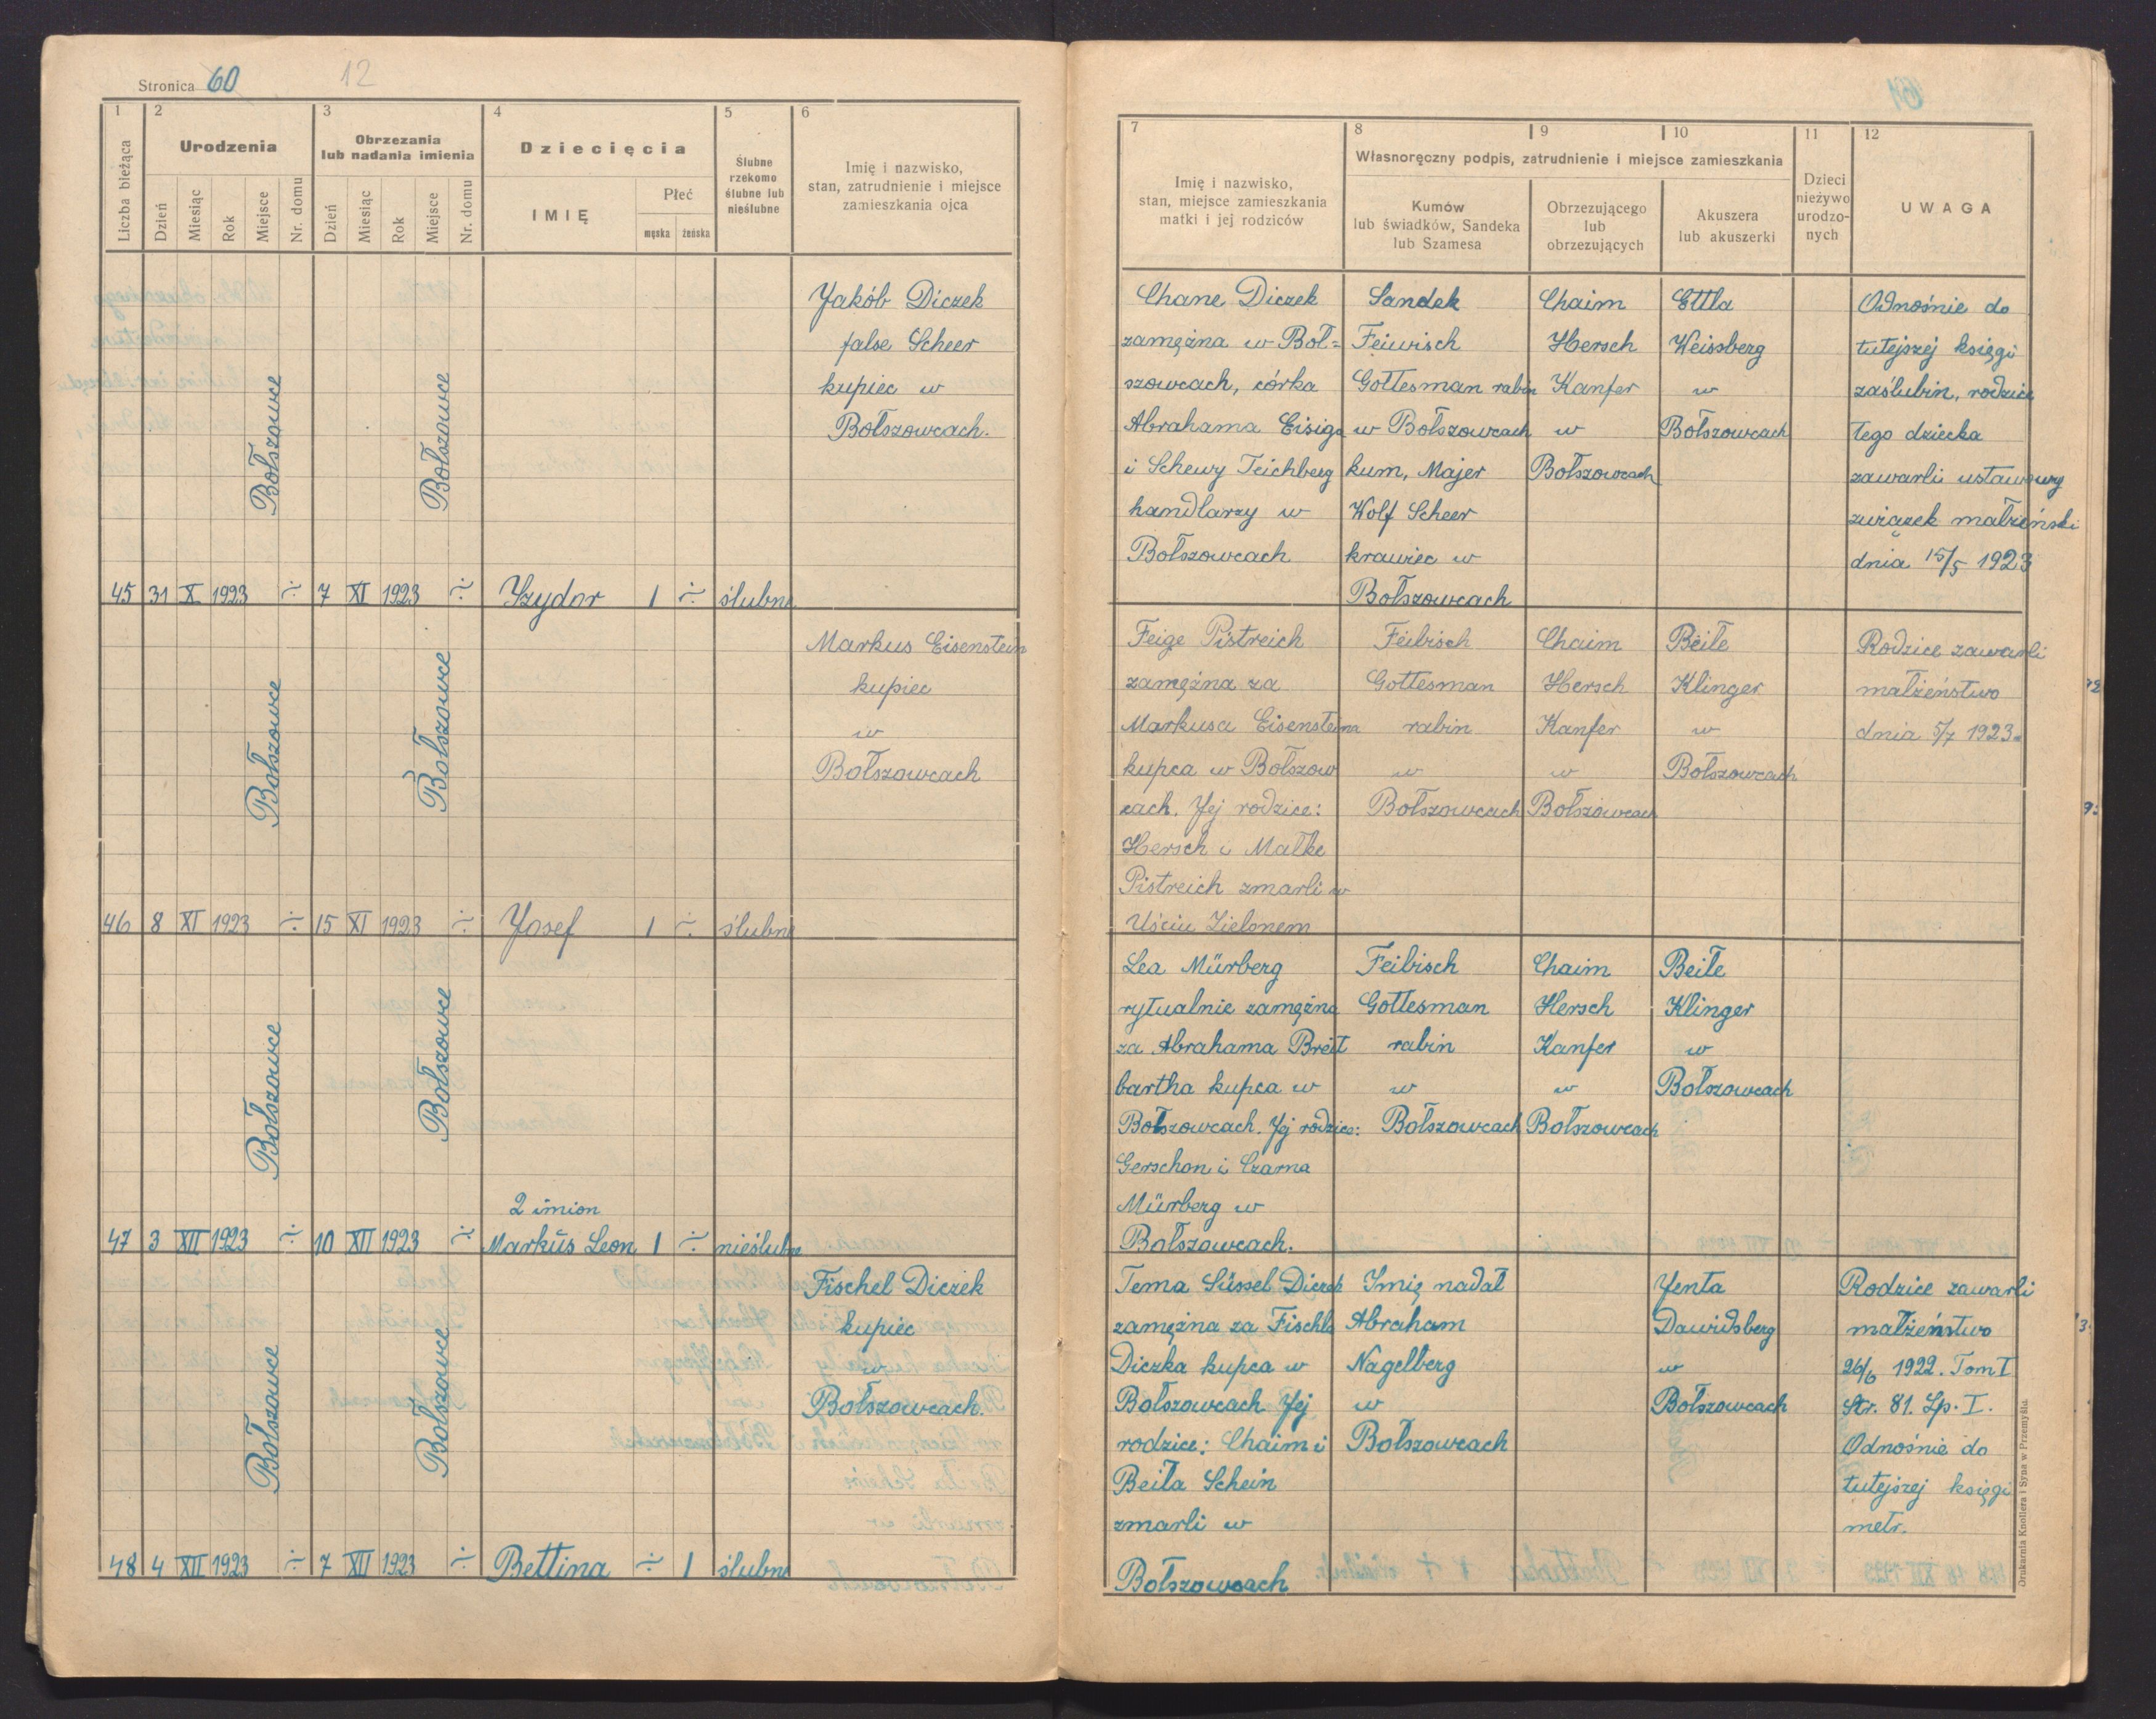 Stronica 60
12
1
2
3
4
5
6
Liczba bieżąca
Urodzenia
Obrzezania
lub nadania imienia
Dziecięcia
Ślubne
rzekomo
ślubne lub
nieślubne
Imię i nazwisko,
stan, zatrudnienie i miejsce
zamieszkania ojca
Dzień
Miesiąc
Rok
Miejsce
Nr. domu
Dzień
Miesiąc
Rok
Miejsce
Nr. domu
IMIĘ
Płeć
męska
żeńska
Jakób Diczek
false Scheer
kupiec w
Bołszowcach.
Bołszowce
Bołszowce
45 31 X 1923 ÷ 7 XI 1923 ÷ Izydor 1 ÷ ślubne
Markus Eisenstein
kupiec
w
Bołszowcach
Bołszowce
Bołszowce
46 8 XI 1923 ÷ 15 XI 1923 ÷ Josef 1 ÷ ślubne
Bołszowce
Bołszowce
2 imion
47 3 XII 1923 ÷ 10 XII 1923 ÷ Markus Leon 1 ÷ nieślubne
Fischel Diczek
kupiec
w
Bołszowcach.
Bołszowce
Bołszowce
48 4 XII 1923 ÷ 7 XII 1923 ÷ Bettina ÷ 1 ślubne
7
8
9
10
11
12
Imię i nazwisko,
stan, miejsce zamieszkania
matki i jej rodziców
Własnoręczny podpis, zatrudnienie i miejsce zamieszkania
Kumów
lub świadków, Sandeka
lub Szamesa
Obrzezującego
lub
obrzezujących
Akuszera
lub akuszerki
Dzieci
nieżywo
urodzo-
nych
UWAGA
Chane Diczek
zamężna w Boł=
szowcach, córka
Abrahama Eisiga
i Schewy Teichberg
handlarzy w
Bołszowcach
Sandek
Feiwisch
Gottesman rabin
w Bołszowcach
kum, Majer
Wolf Scheer
krawiec w
Bołszowcach
Chaim
Hersch
Kanfer
w
Bołszowcach
Ettla
Weissberg
w
Bołszowcach
Odnośnie do
tutejszej księgi
zaślubin, rodzice
tego dziecka
zawarli ustawowy
związek małżeński
dnia 15/5 1923
Feige Pistreich
zamężna za
Markusa Eisensteina
kupca w Bołszow
cach. Jej rodzice:
Hersch i Małke
Pistreich zmarli w
Uściu Zielonem
Feibisch
Gottesman
rabin
w
Bołszowcach
Chaim
Hersch
Kanfer
w
Bołszowcach
Beile
Klinger
w
Bołszowcach
Rodzice zawarli
małżeństwo
dnia 5/7 1923.
Lea Mürberg
rytualnie zamężna
za Abrahama Breit
bartha kupca w
Bołszowcach. Jej rodzice:
Gerschon i Czarna
Mürberg w
Bołszowcach.
Feibisch
Gottesman
rabin
w
Bołszowcach
Chaim
Hersch
Kanfer
w
Bołszowcach
Beile
Klinger
w
Bołszowcach
Tema Süssel Diczek
zamężna za Fischla
Diczka kupca w
Bołszowcach Jej
rodzice: Chaim i
Beila Schein
zmarli w
Bołszowcach
Imię nadał
Abraham
Nagelberg
w
Bołszowcach
Jenta
Dawidsberg
w
Bołszowcach
Rodzice zawarli
małżeństwo
26/6 1922. Tom I
Str. 81. Lp. I.
Odnośnie do
tutejszej księgi
metr.
Drukarnia Knollera i Syna w Przemyślu.